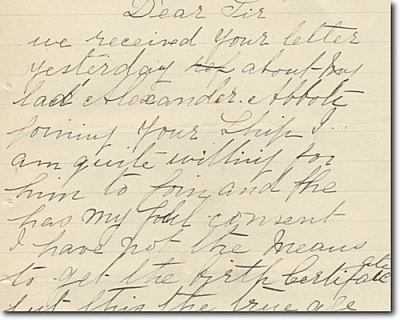 Dear Sir
we received your letter
yesterday ref about my
lad Alexander. Abbott
joining your Ship I.
am quite willing for
him to join and the
has my full consent
I have not the means
to get the Birth Certificate
but this the true age